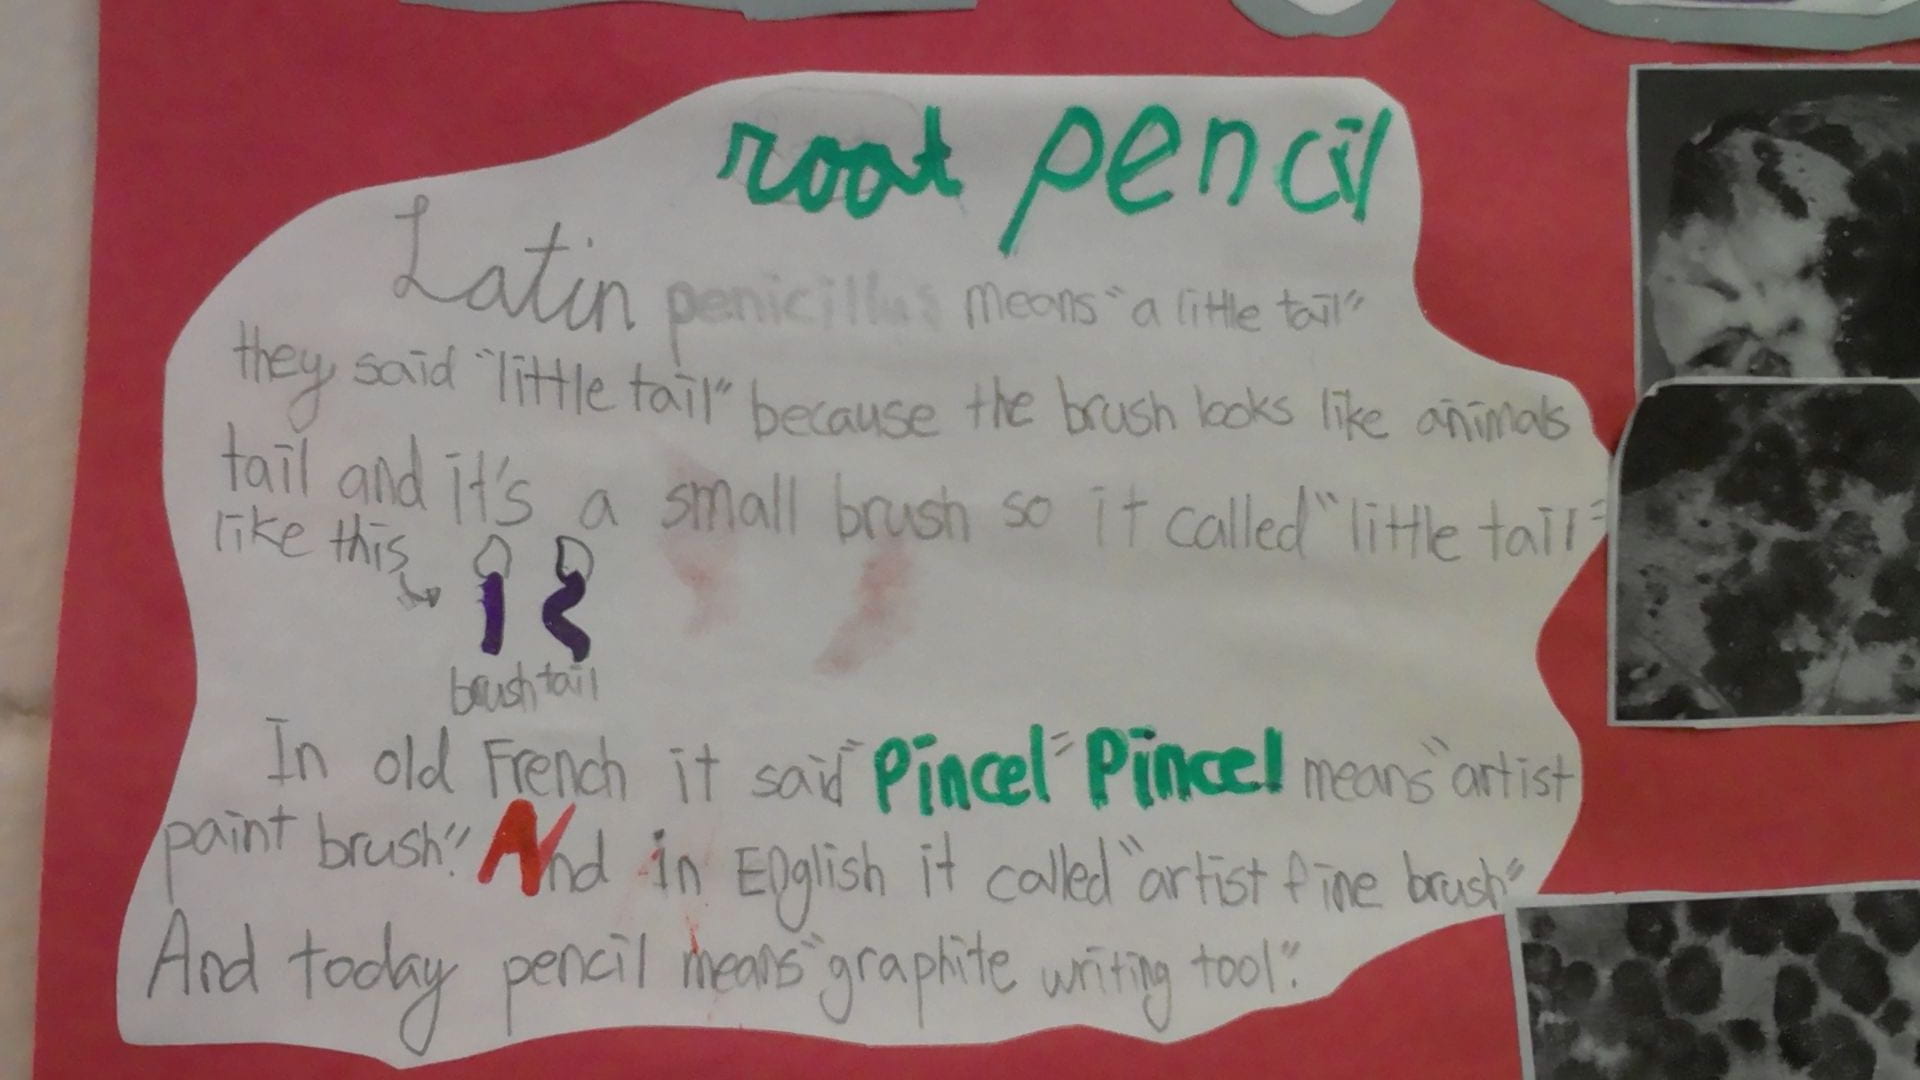 root pencil
Latin penicillus means "a little tail"
they said "little tail" because the brush looks like animals
tail and it's a small brush so it called "little tail"
like this
brush tail
In old French it said "Pincel" Pincel means "artist
paint brush". And in English it called "artist fine brush"
And today pencil means "graphite writing tool".